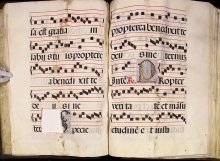 sa est gratia in
labijs tuis propterea
a benedixit te
de us in e
specie
propterea benedixit te
de us in e
Inte R Ropter
veri ta te et māsu
etudinē et iusti